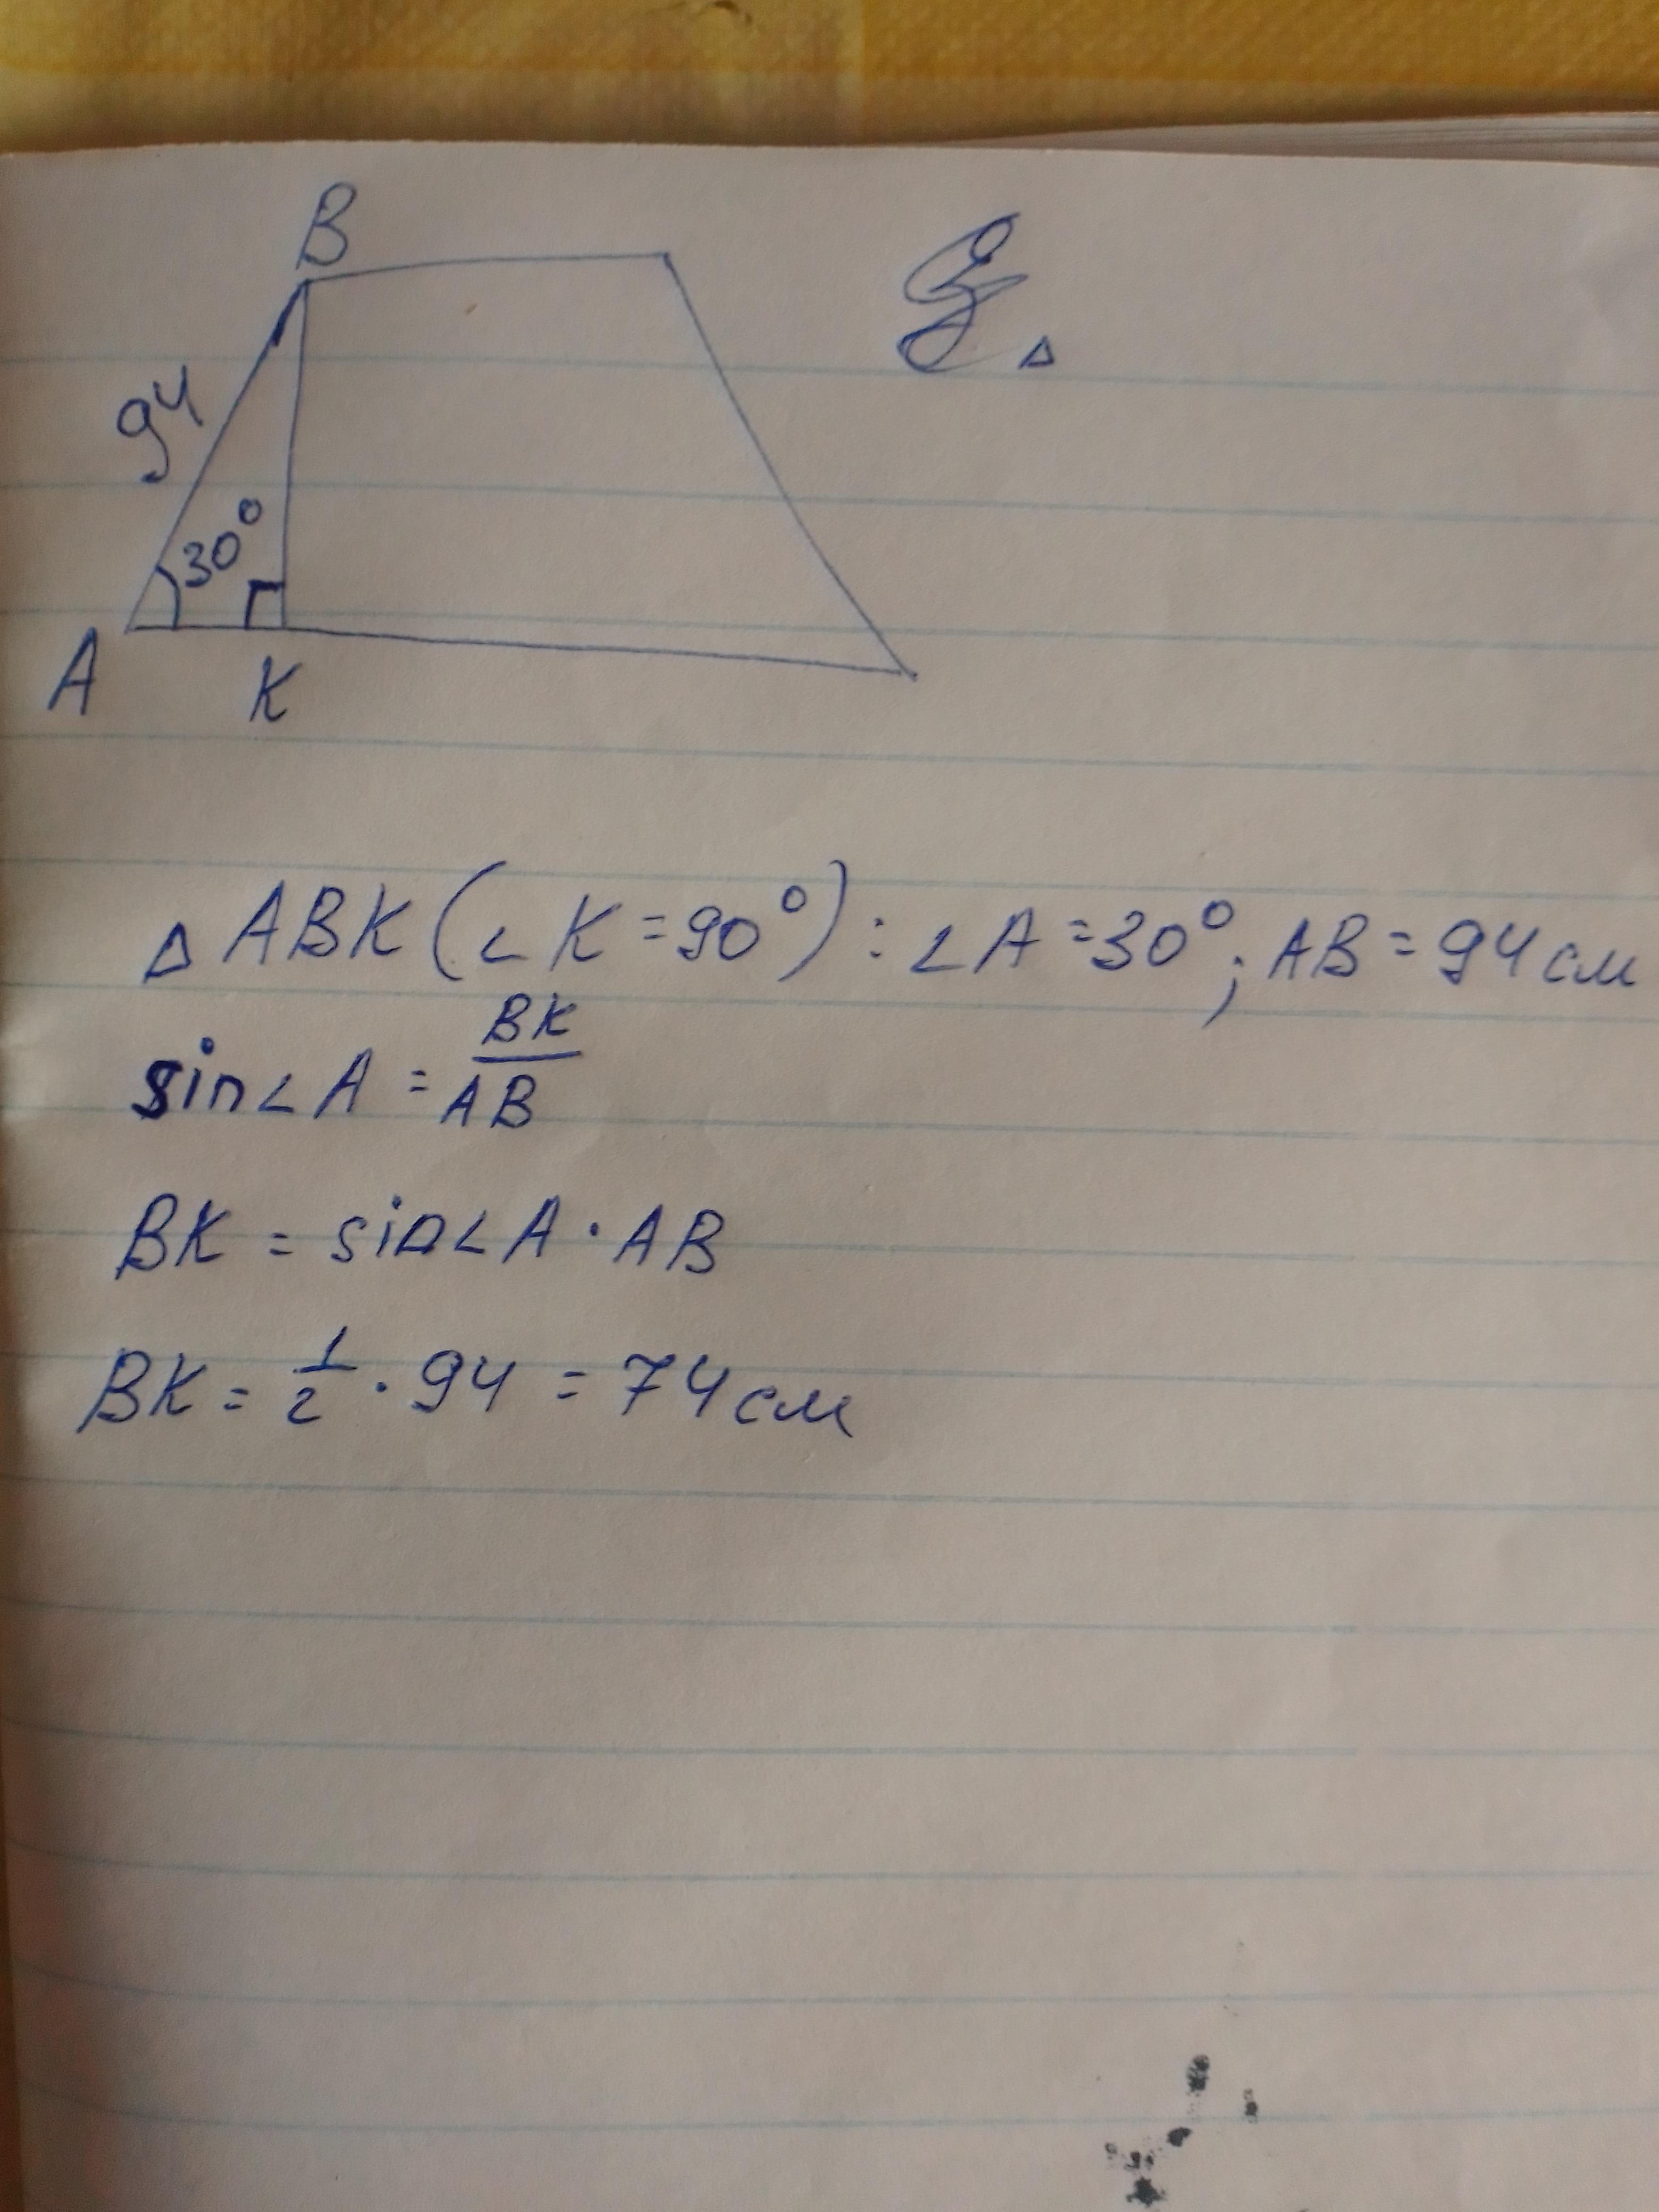 B
94
30°
A K
△ABK(∠K=90°): ∠A=30°; AB=94см
sin∠A = BK/AB
BK = sin∠A · AB
BK = 1/2 · 94 = 74см